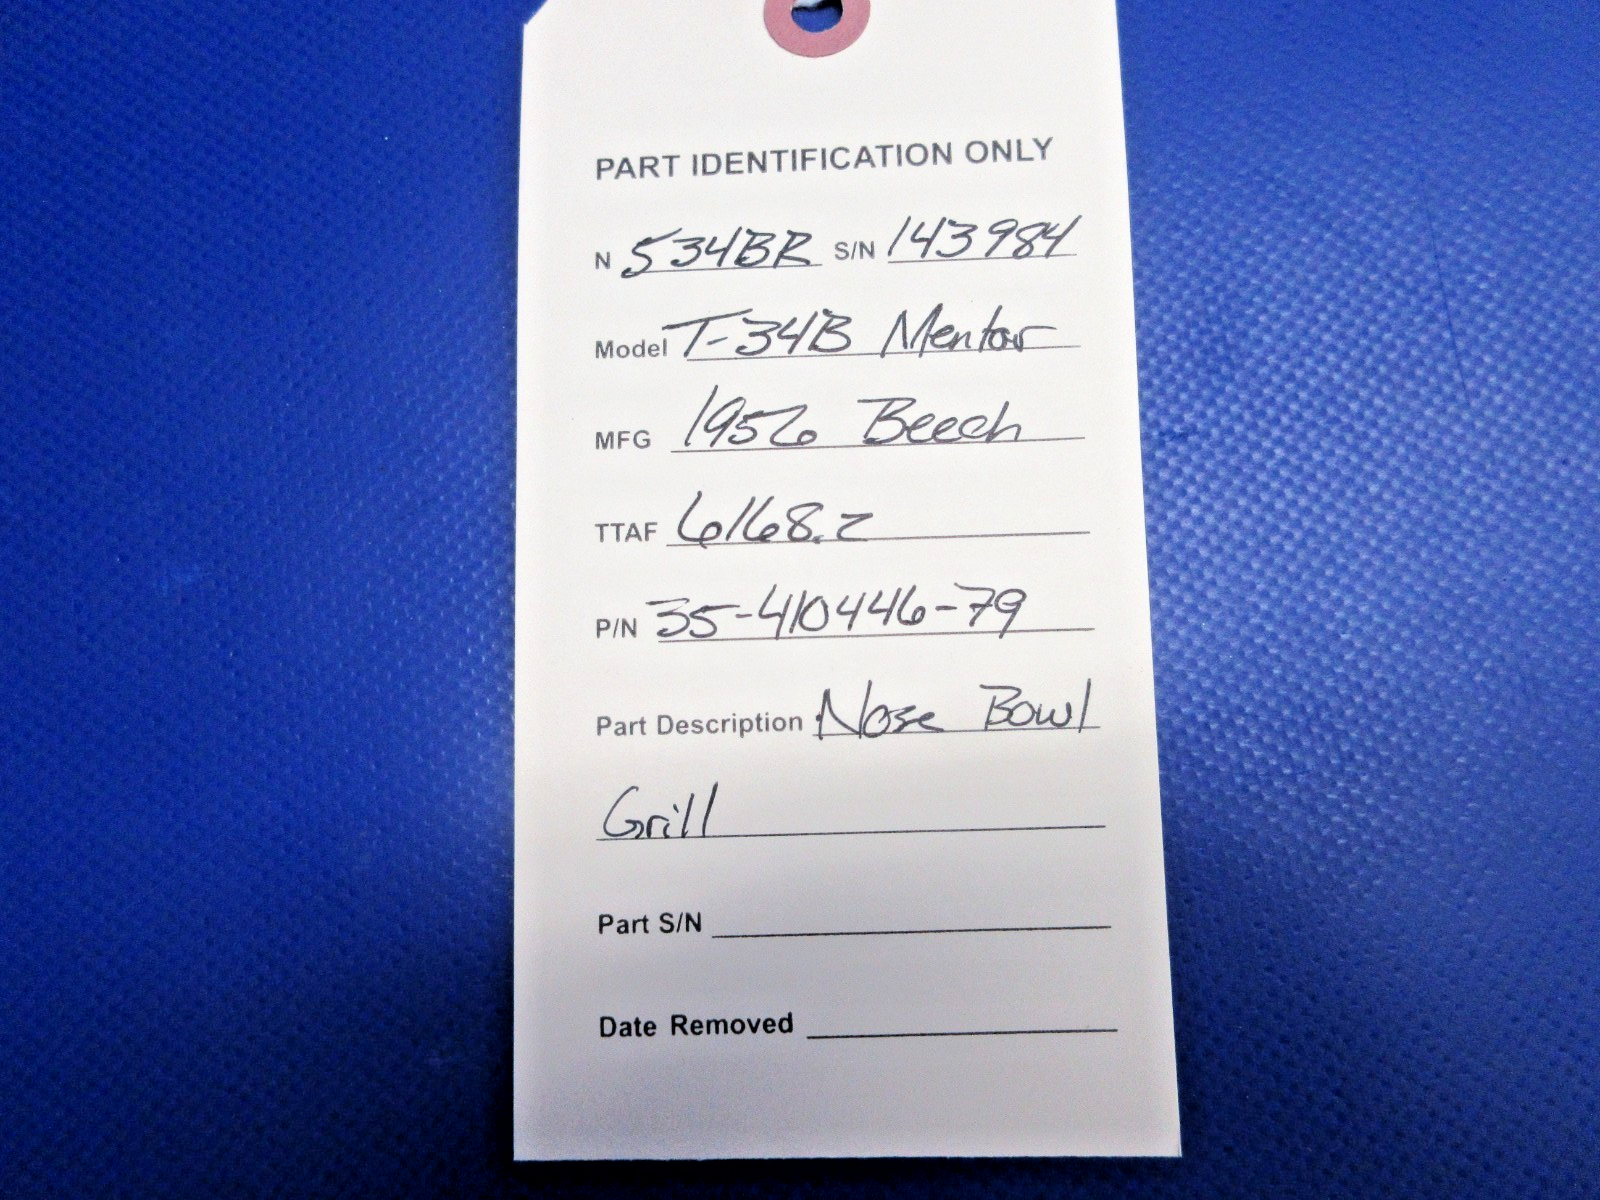 PART IDENTIFICATION ONLY
N 534BR S/N 143984
Model T-34B Mentor
MFG 1956 Beech
TTAF 6168.2
P/N 35-410446-79
Part Description Nose Bowl
Grill
Part S/N
Date Removed